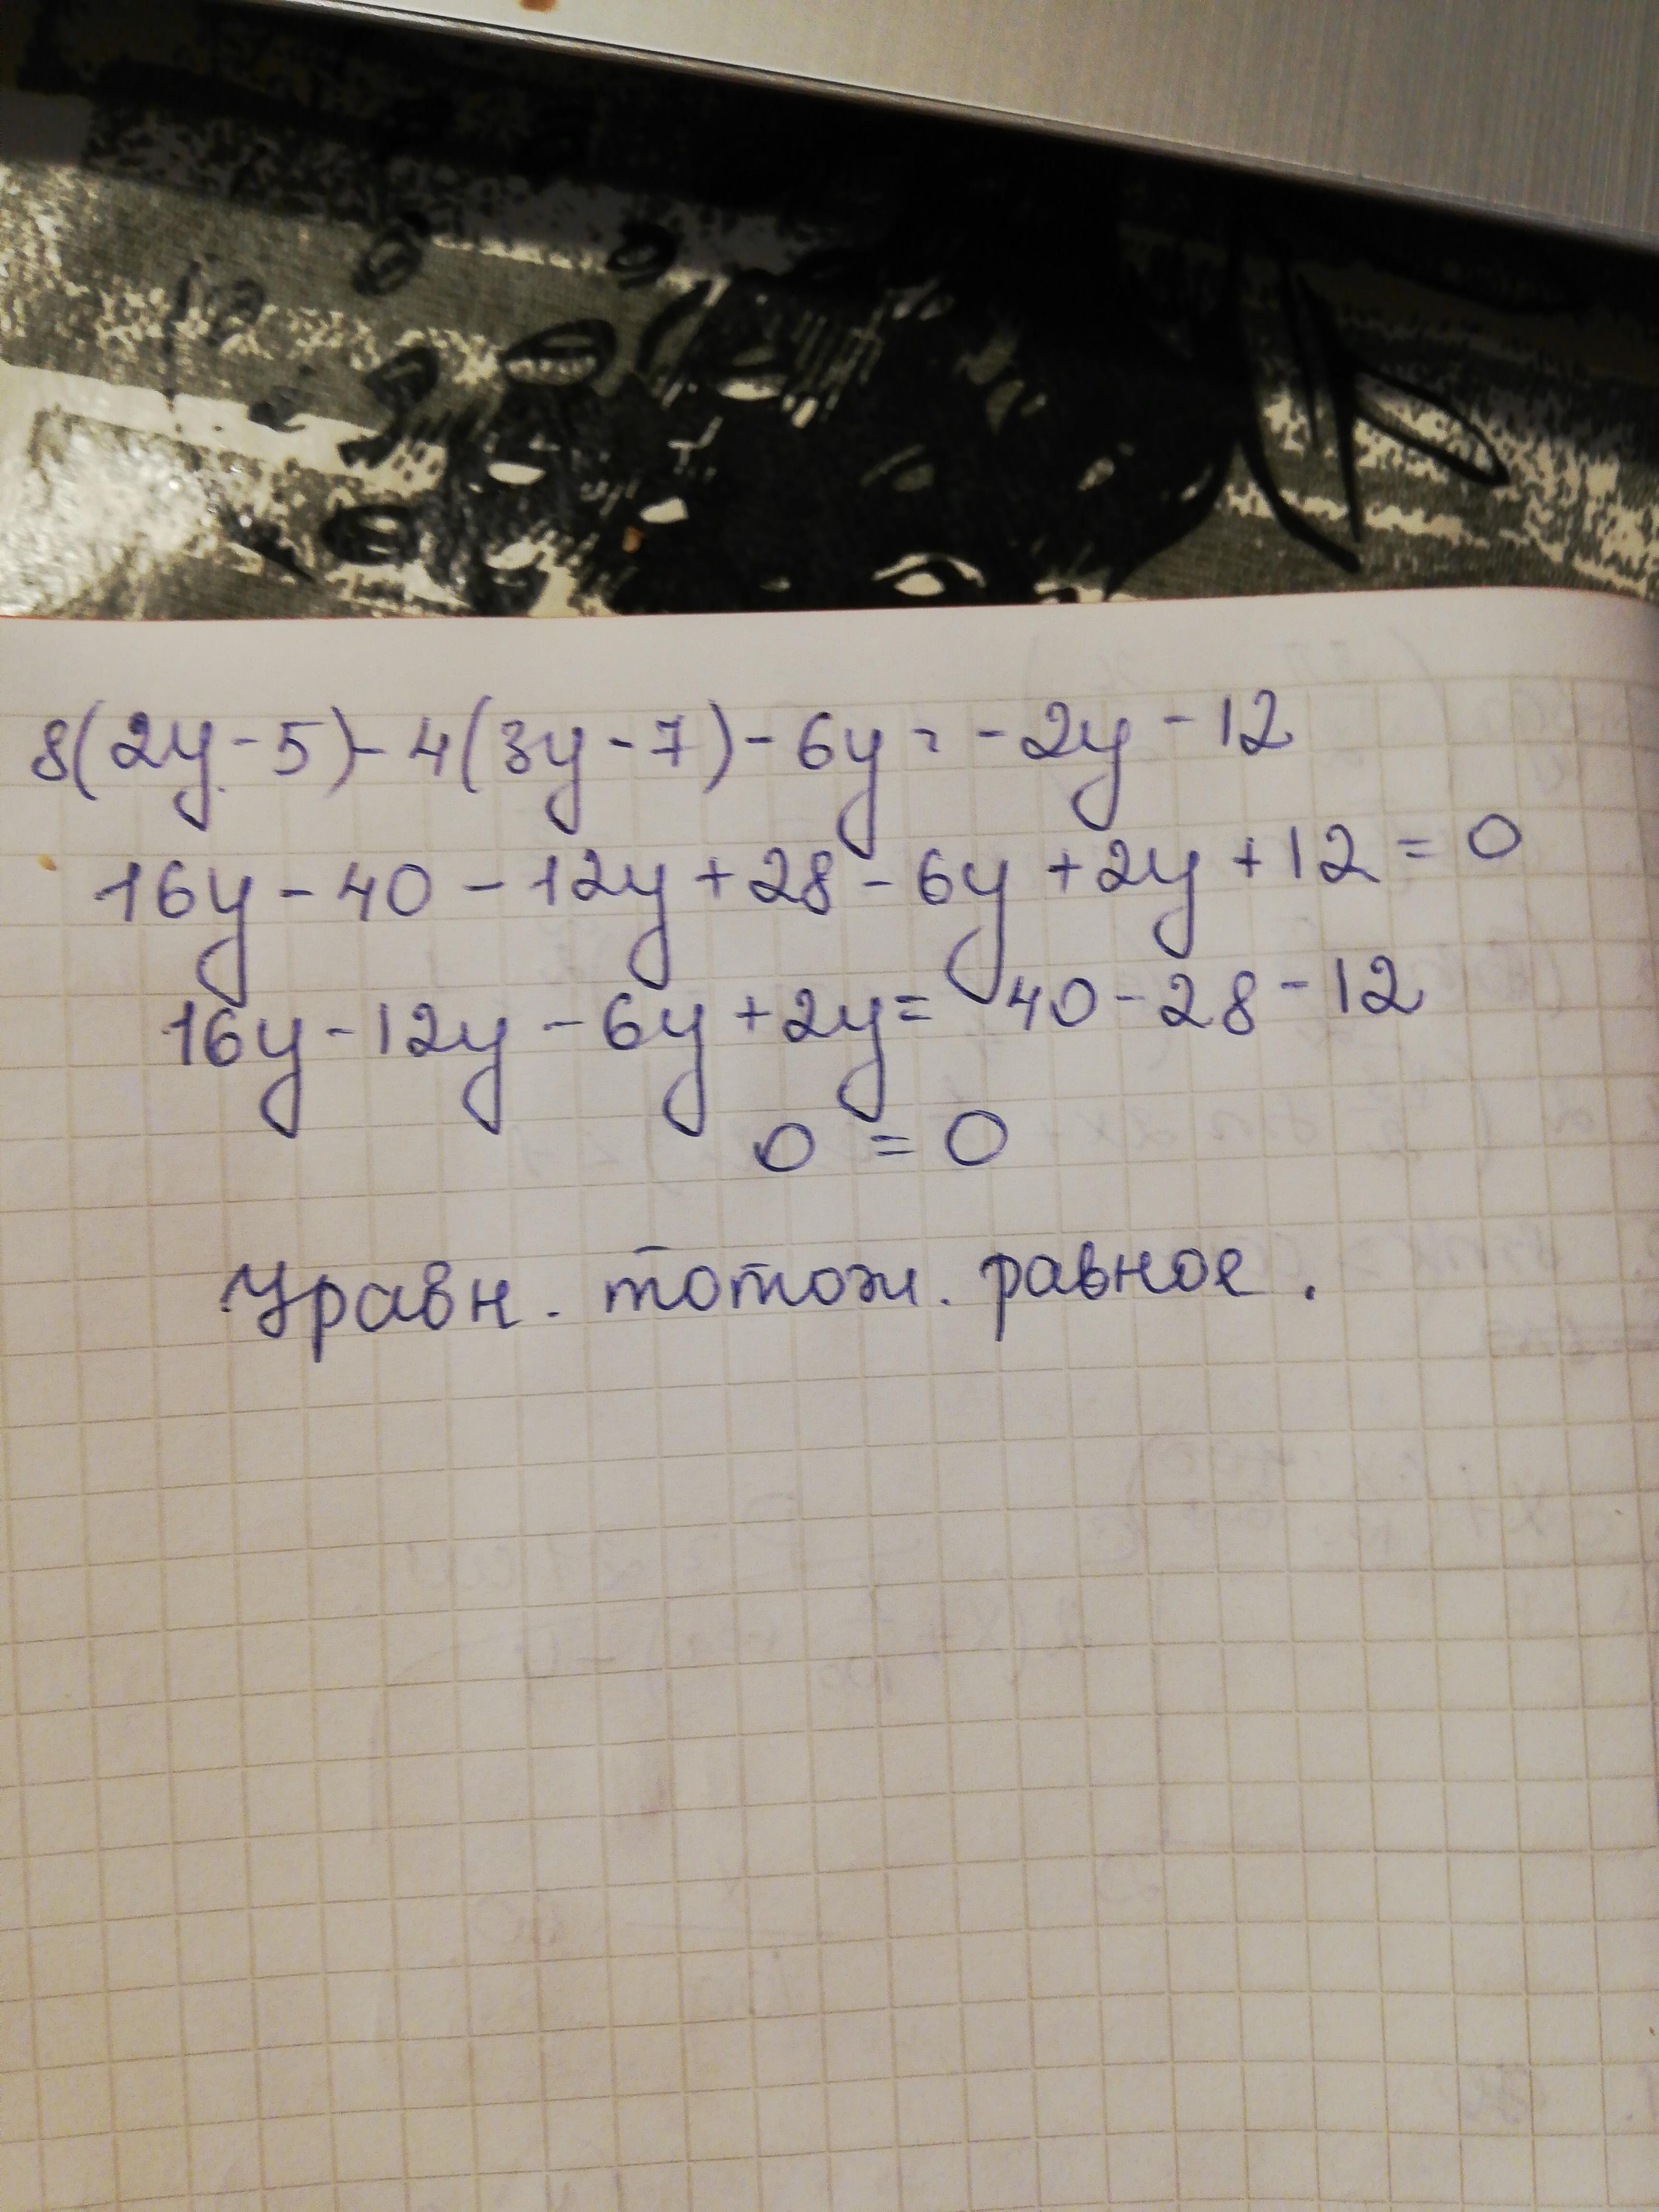 8(2y-5)-4(3y-7)-6y=-2y-12
16y-40-12y+28-6y+2y+12=0
16y-12y-6y+2y=40-28-12
0=0
Уравн. тотож. равное.